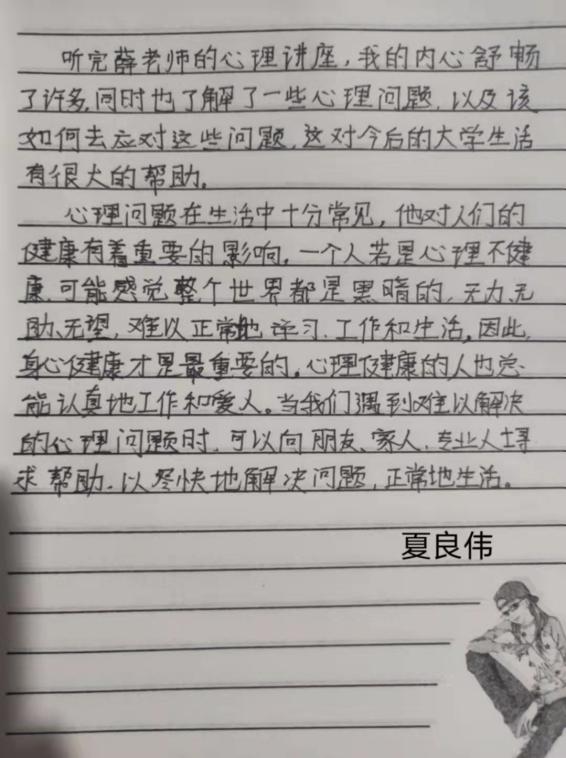 听完薛老师的心理讲座，我的内心舒畅
了许多，同时也了解了一些心理问题，以及该
如何去应对这些问题，这对今后的大学生活
有很大的帮助。
心理问题在生活中十分常见，他对人们的
健康有着重要的影响。一个人若是心理不健
康，可能感觉整个世界都是黑暗的，无力、无
助、无望，难以正常地学习、工作和生活。因此，
身心健康才是最重要的。心理健康的人也总
能认真地工作和爱人。当我们遇到难以解决
的心理问题时，可以向朋友、家人、专业人士寻
求帮助，以尽快地解决问题，正常地生活。
夏良伟